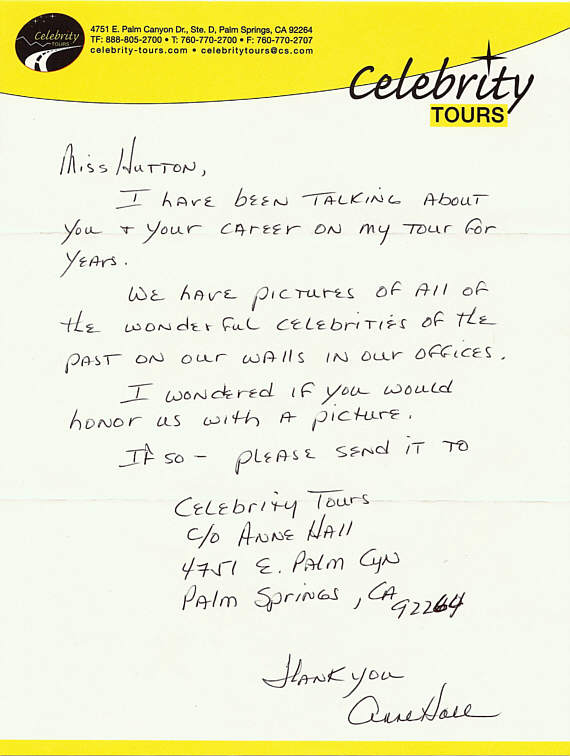 Celebrity
TOURS
4751 E. Palm Canyon Dr., Ste. D, Palm Springs, CA 92264
TF: 888-805-2700 • T: 760-770-2700 • F: 760-770-2707
celebrity-tours.com • celebritytours@cs.com
Celebrity
TOURS
Miss Hutton,
I have been talking about
you + your career on my tour for
years.
We have pictures of all of
the wonderful celebrities of the
past on our walls in our offices.
I wondered if you would
honor us with a picture.
If so – please send it to
Celebrity Tours
c/o Anne Hall
4751 E. Palm Cyn
Palm Springs, CA
92264
Thank you
Anne Hall